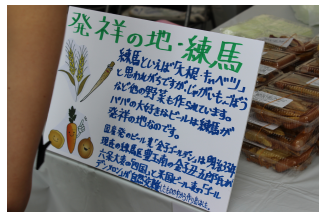 発祥の地・練馬
練馬といえば「大根・キャベツ」
と思われがちですが、じゃがいも・ごぼう
など他の野菜も作られています。
パパの大好きなビールは練馬が
発祥の地なのです。
国産発のビール麦「金子ゴールデン」は明治33年
現在の練馬区豊玉南の金子丑五郎氏が
六条大麦の「四国」と米国ビール麦の「ゴール
デンメロン」が自然交雑